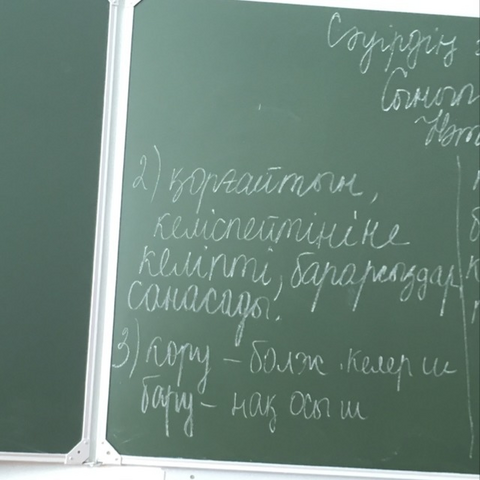 Сәуірдің
Сынып
2) қорғайтын,
келіспейтініне
келіпті, барарсыздар
санасады.
3) қору – болж. келер ш
бару – нақ осы ш